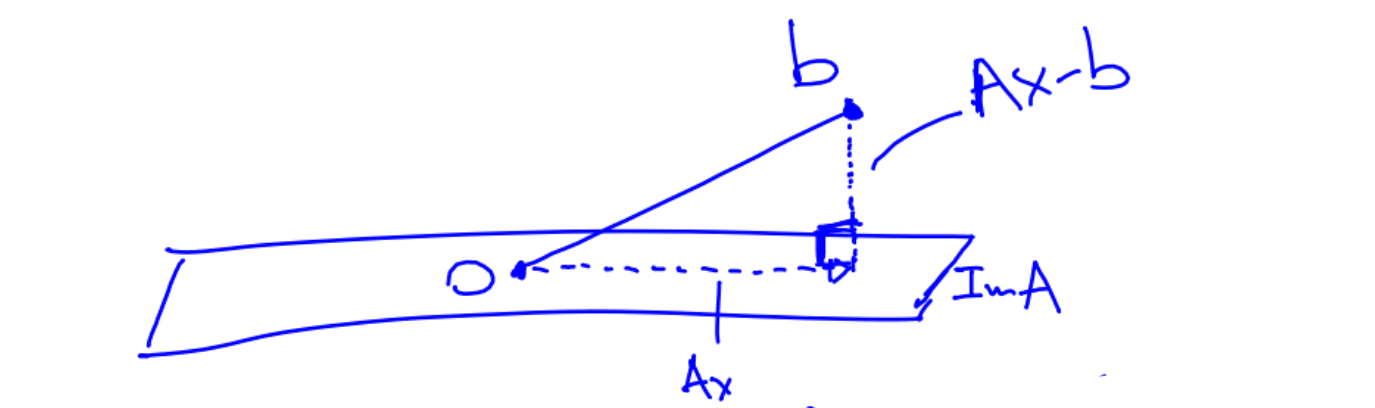 b
Ax-b
O
ImA
Ax